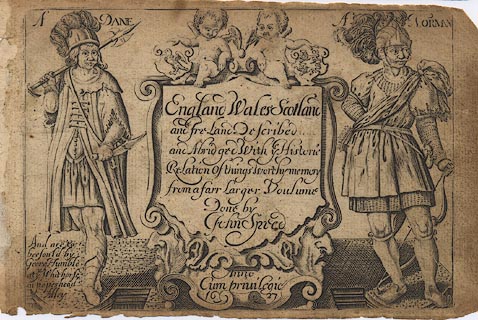 A DANE
A NORMAN
England Wales Scotland
and Ireland Described
and Abridged With ye Historie
Relation Of things worthy memory
from a farr Larger Voulume
Done by
John Speed
Anno
Cum privilegio
1627
And are to be
sould by
Georg Humble
at ye Whit horse
in popes head
Alley